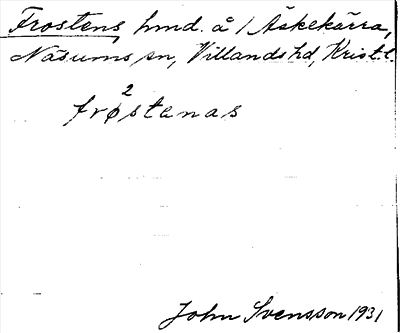 Frostens, hmd. å 1 Äskekärra,
Näsums sn, Villands hd, Krist. l.
2
frøstenas
John Svensson 1931